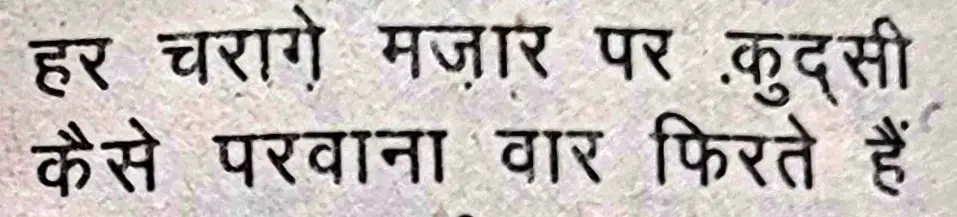 हर चराग़े मज़ार पर क़ुद्सी
कैसे परवाना वार फिरते हैं